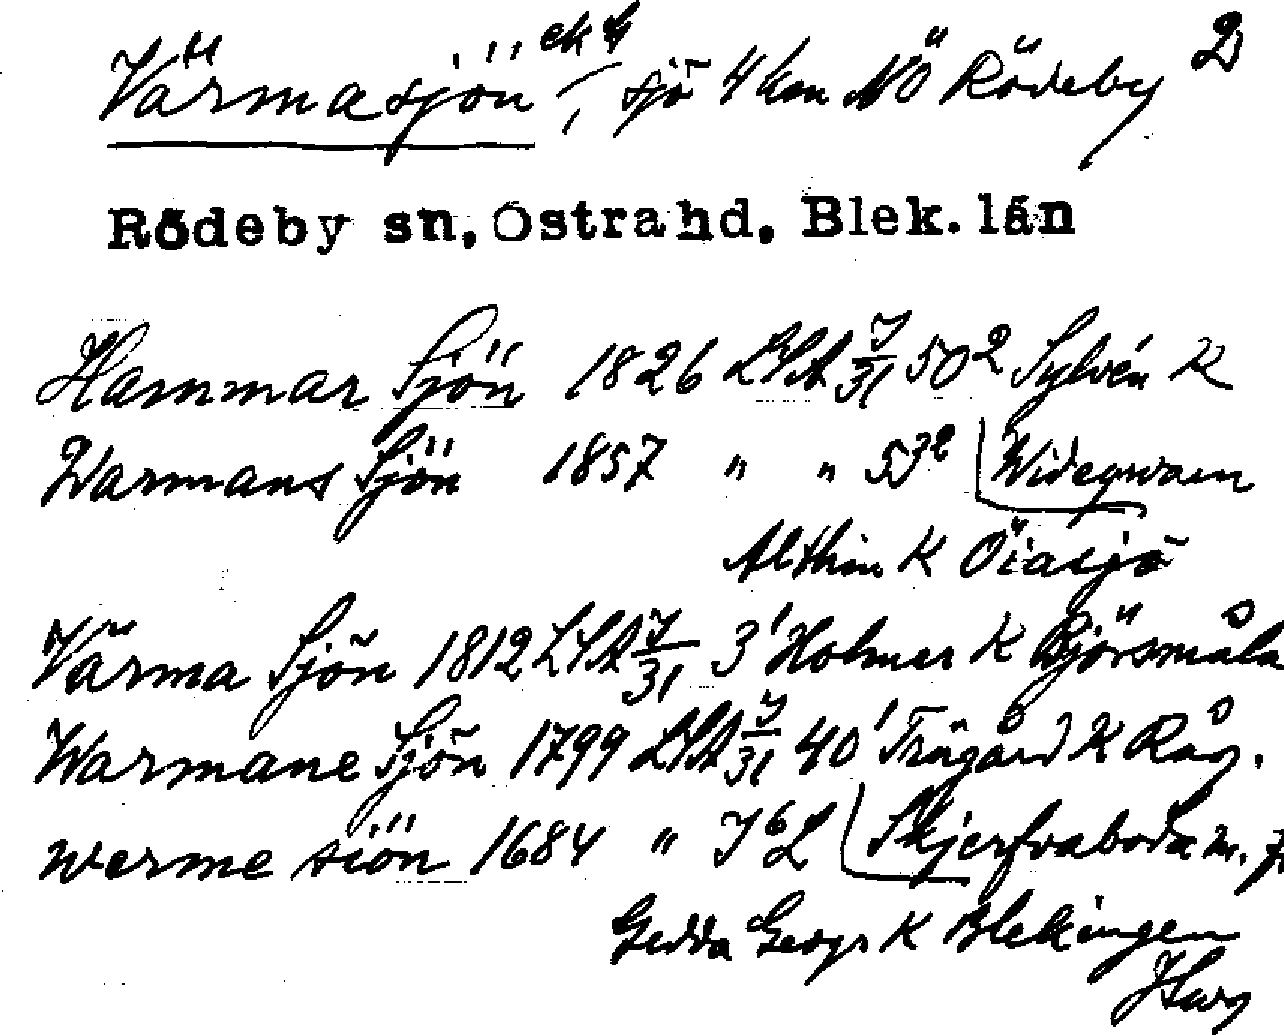 Värmasjön ek 4, sjö 4 km NÖ Rödeby 2
Rödeby sn, Östra hd, Blek. län
Hammar Sjön 1826 LSA J/31 50² Sylvén K
Warmans Sjön 1857 " " 53² Widegwarn
Althin K Öiasjö
Värma Sjön 1812 LSA J/31 3¹ Holmer K Björsmåla
Warmane Sjön 1799 LSA J/31 40¹ Trägård K Råg.
werme siön 1684 " J⁶L Skjerfvaboda m. fl
Gedda Geogr K Blekingen